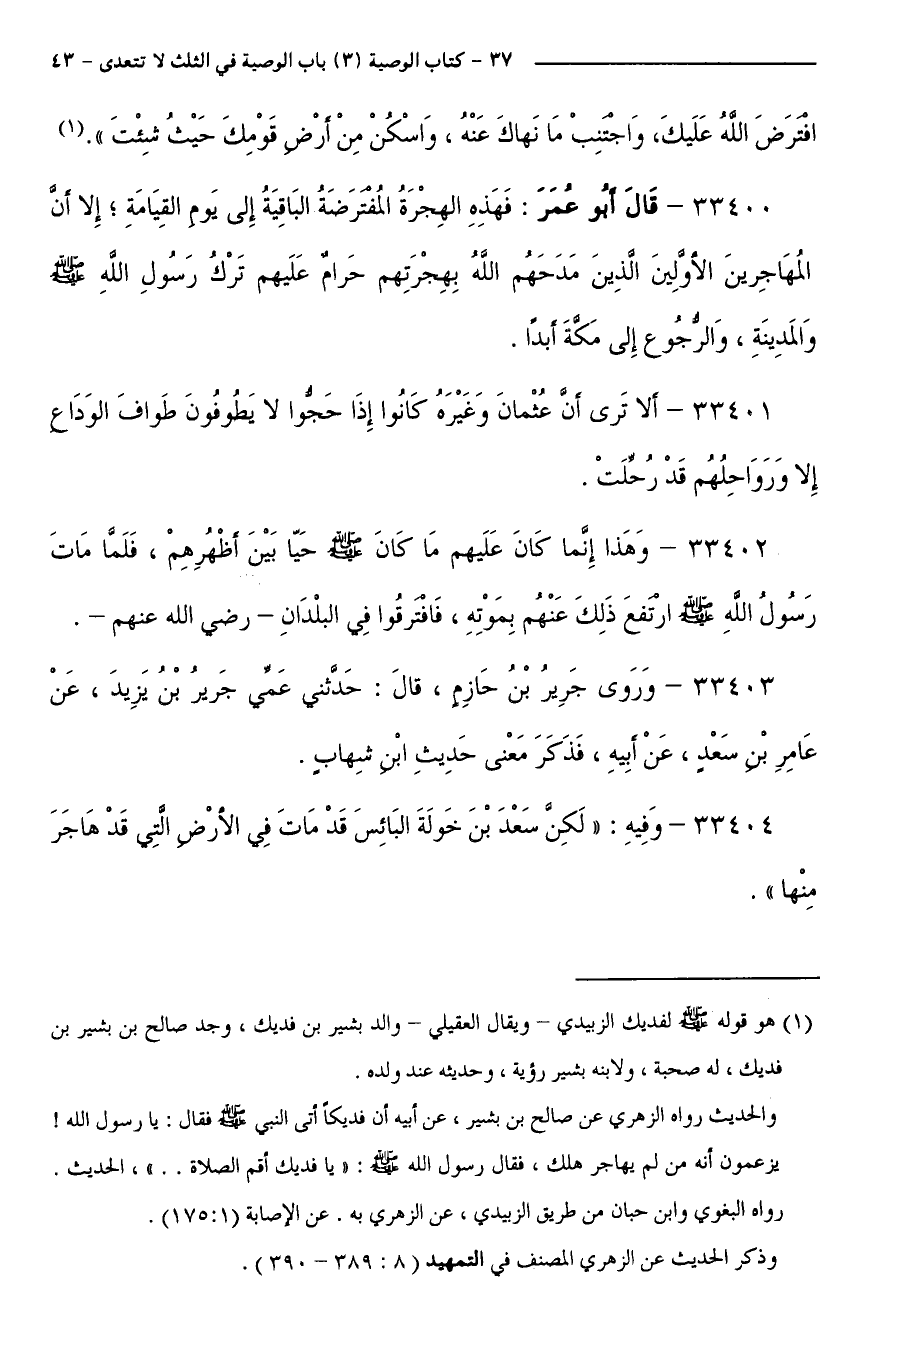 ٣٧ - كتاب الوصية (٣) باب الوصية في الثلث لا تتعدى - ٤٣
افْتَرَضَ اللَّهُ عَلَيكَ، وَاجْتَنِبْ مَا نَهاكَ عَنْهُ ، وَاسْكُنْ مِنْ أَرْضِ قَوْمِكَ حَيْثُ شِئْتَ ».(١)
٣٣٤٠٠ - قَالَ أَبُو عُمَرَ : فَهَذِهِ الهِجْرَةُ المُفْتَرَضَةُ البَاقِيَةُ إِلى يَومِ القِيَامَةِ ؛ إِلا أَنَّ
المُهَاجِرِينَ الأوَّلِينَ الَّذِينَ مَدَحَهُم اللَّهُ بِهِجْرَتِهم حَرامٌ عَلَيهم تَرْكُ رَسُولِ اللَّهِ ﷺ
وَالمَدِينَةِ ، وَالرُّجُوعِ إِلى مَكَّةَ أَبدًا .
٣٣٤٠١ - أَلا تَرى أَنَّ عُثْمانَ وَغَيْرَهُ كَانُوا إِذَا حَجُّوا لا يَطُوفُونَ طَوافَ الوَدَاعِ
إِلا وَرَوَاحِلُهُم قَدْ رُحِّلَتْ .
٣٣٤٠٢ - وَهَذا إِنَّما كَانَ عَلَيهم مَا كَانَ ﷺ حَيّا بَيْنَ أَظْهُرِهِمْ ، فَلَمَّا مَاتَ
رَسُولُ اللَّهِ ﷺ ارْتَفعَ ذَلِكَ عَنْهُم بِمَوْتِهِ ، فَافْتَرقُوا فِي البلْدَانِ - رضي الله عنهم - .
٣٣٤٠٣ - وَرَوى جَرِيرُ بْنُ حَازِمٍ ، قالَ : حَدَّثني عَمِّي جَرِيرُ بْنُ يَزِيدَ ، عَنْ
عَامِرِ بْنِ سَعْدٍ ، عَنْ أَبِيهِ ، فَذَكَرَ مَعْنى حَدِيثِ ابْنِ شِهابٍ .
٣٣٤٠٤ - وَفِيهِ : « لَكِنَّ سَعْدَ بْنَ خَولَةَ البَائِسَ قَدْ مَاتَ فِي الأرْضِ الَّتِي قَدْ هَاجَرَ
مِنْها » .
(١) هو قوله ﷺ لفديك الزبيدي - ويقال العقيلي - والد بشير بن فديك ، وجد صالح بن بشير بن
فديك ، له صحبة ، ولابنه بشير رؤية ، وحديثه عند ولده .
والحديث رواه الزهري عن صالح بن بشير ، عن أبيه أن فديكاً أتى النبي ﷺ فقال : يا رسول الله !
يزعمون أنه من لم يهاجر هلك ، فقال رسول الله ﷺ : « يا فديك أقم الصلاة . . » ، الحديث .
رواه البغوي وابن حبان من طريق الزبيدي ، عن الزهري به . عن الإصابة (١٧٥:١) .
وذكر الحديث عن الزهري المصنف في التمهيد (٨ : ٣٨٩ - ٣٩٠) .